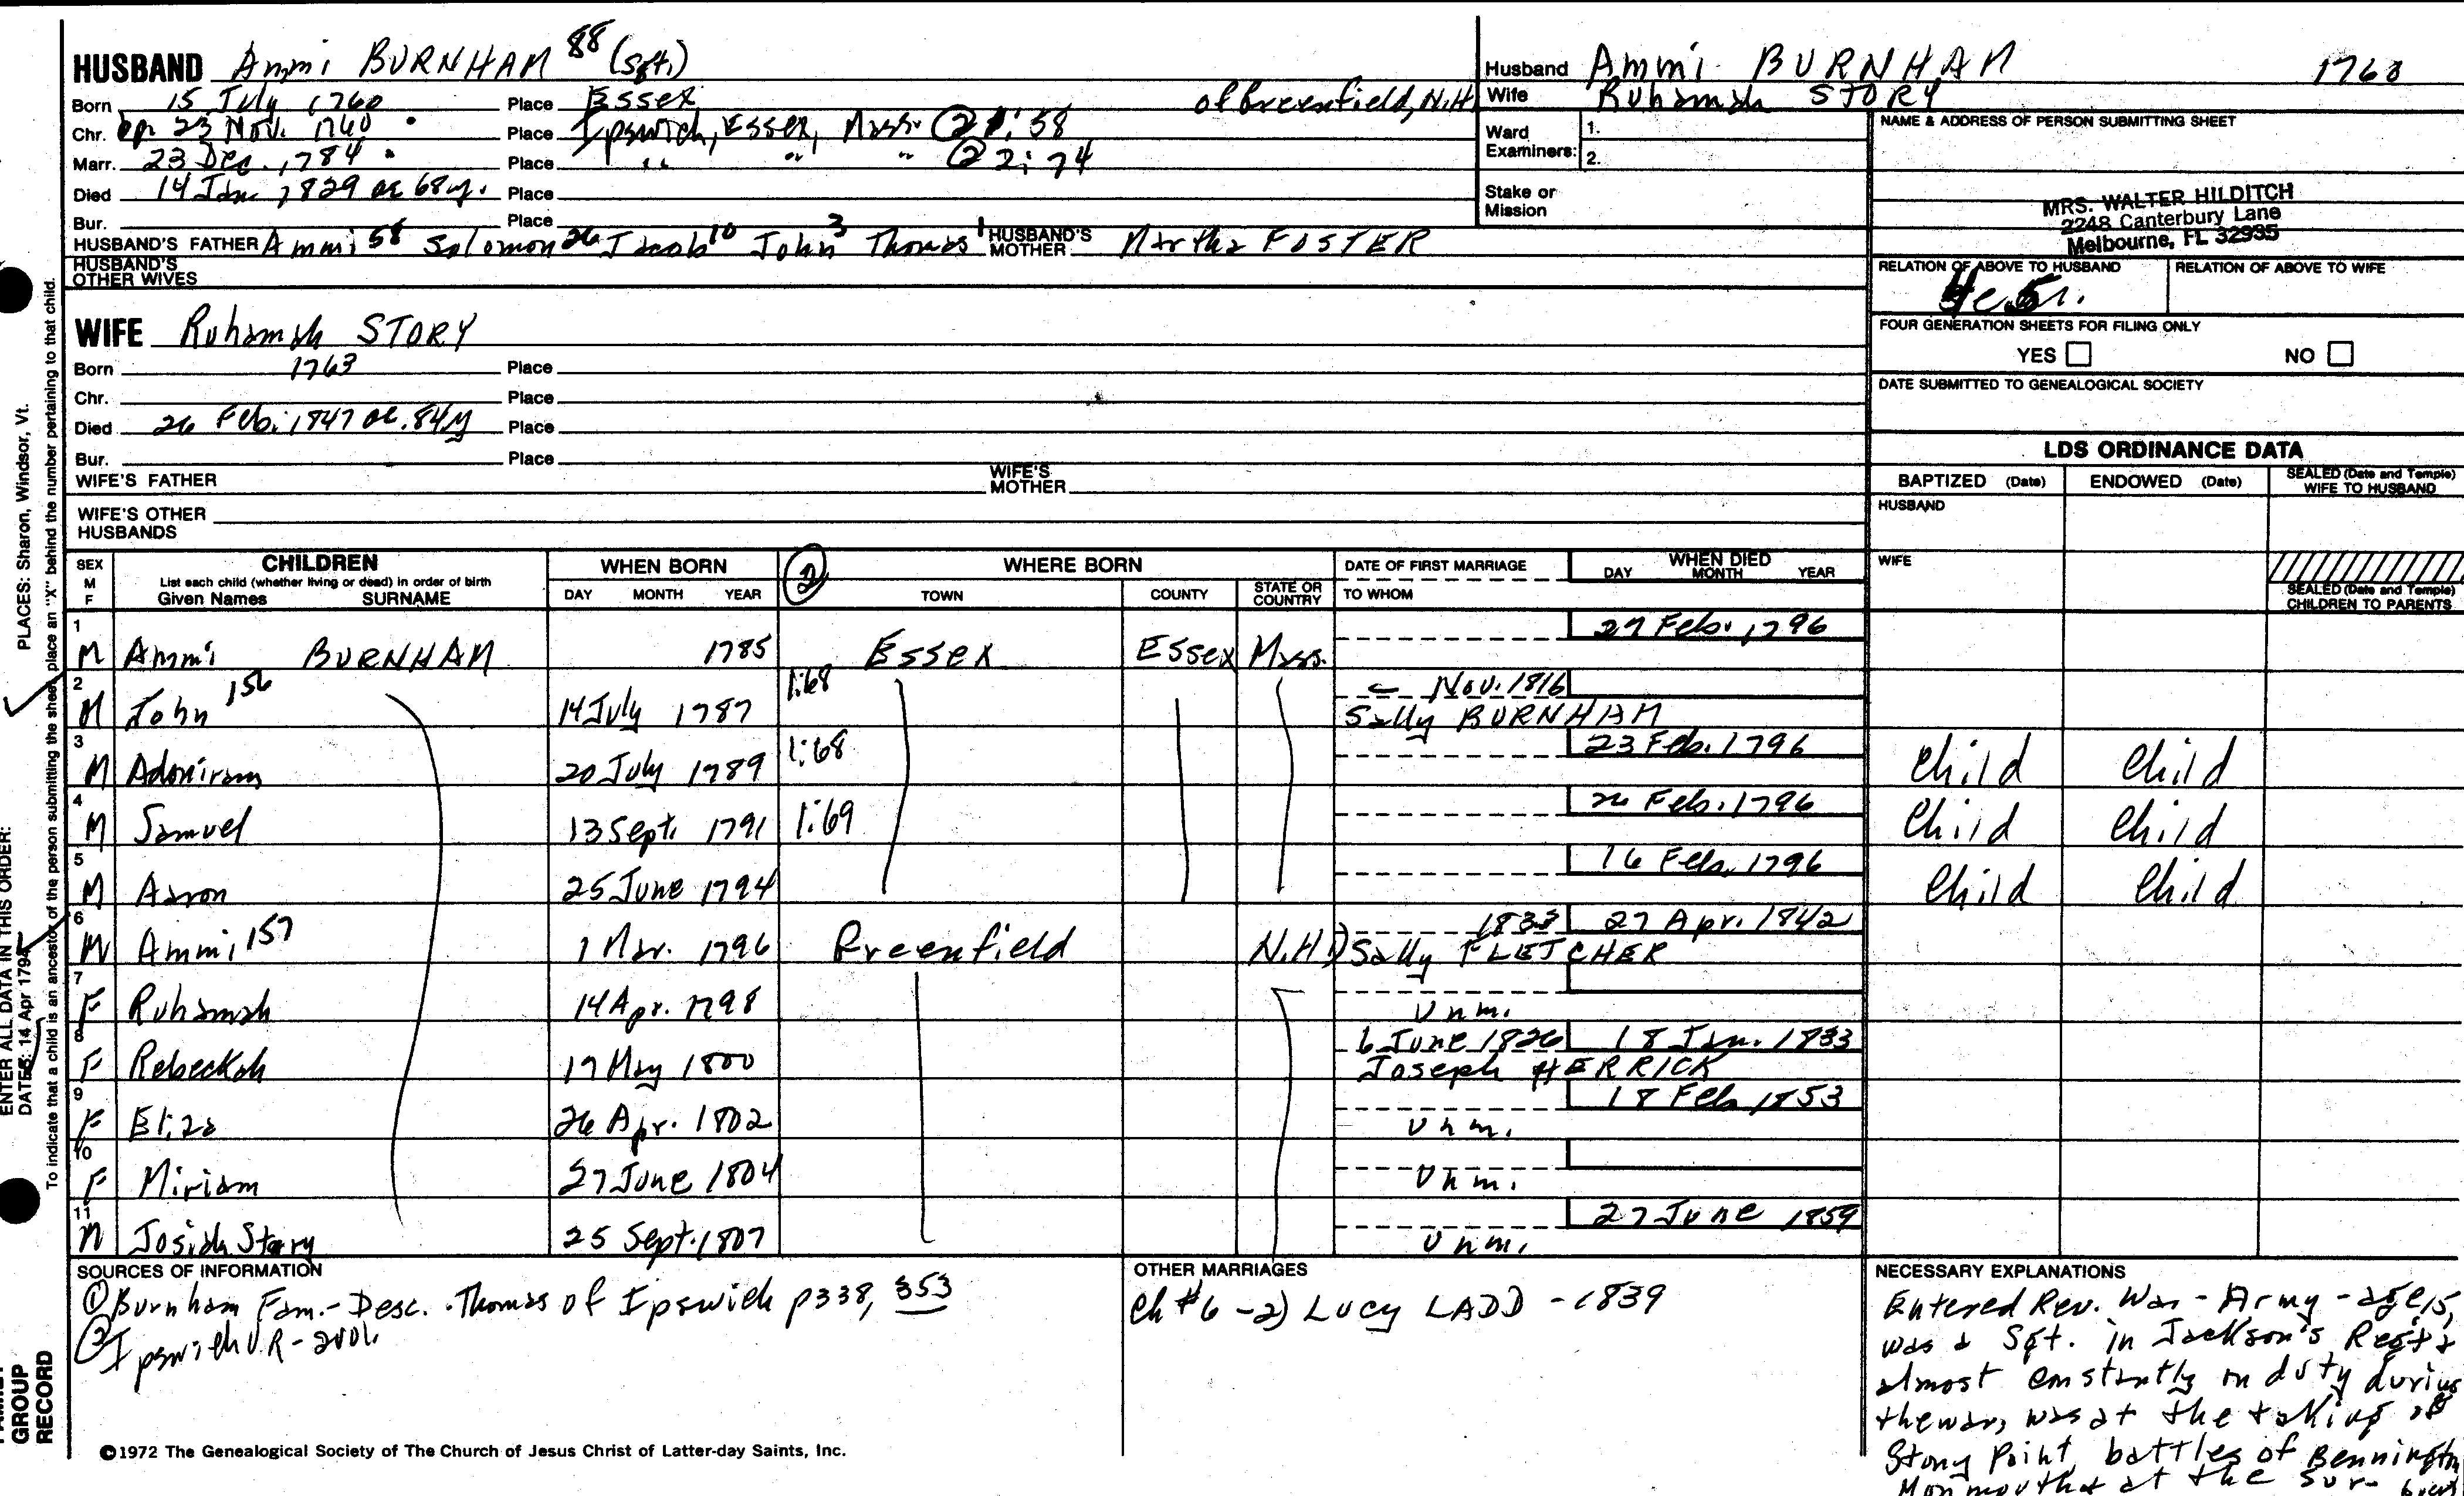 HUSBAND Ammi BURNHAM 88 (Sgt.)
Born 15 July 1760 Place Essex of Greenfield, N.H.
Chr. bp. 23 Nov. 1760 Place Ipswich, Essex, Mass. ② 1:58
Marr. 23 Dec. 1784 Place " " " ② 2:74
Died 14 Jan 1829 ae 68y. Place
Bur. Place
HUSBAND'S FATHER Ammi 58 Solomon 26 Jacob 10 John 3 Thomas 1 HUSBAND'S MOTHER Martha FOSTER
HUSBAND'S OTHER WIVES
WIFE Ruhamah STORY
Born 1763 Place
Chr. Place
Died 26 Feb. 1847 ae. 84y Place
Bur. Place
WIFE'S FATHER WIFE'S MOTHER
WIFE'S OTHER HUSBANDS
Husband Ammi BURNHAM 1760
Wife Ruhamah STORY
Ward Examiners: 1.
2.
Stake or Mission
NAME & ADDRESS OF PERSON SUBMITTING SHEET
MRS. WALTER HILDITCH
2248 Canterbury Lane
Melbourne, FL 32935
RELATION OF ABOVE TO HUSBAND RELATION OF ABOVE TO WIFE
FOUR GENERATION SHEETS FOR FILING ONLY
YES NO
DATE SUBMITTED TO GENEALOGICAL SOCIETY
LDS ORDINANCE DATA
BAPTIZED (Date) ENDOWED (Date) SEALED (Date and Temple) WIFE TO HUSBAND
HUSBAND
WIFE
SEALED (Date and Temple) CHILDREN TO PARENTS
SEX M F CHILDREN WHEN BORN ② WHERE BORN DATE OF FIRST MARRIAGE WHEN DIED
List each child (whether living or dead) in order of birth
Given Names SURNAME DAY MONTH YEAR TOWN COUNTY STATE OR COUNTRY TO WHOM DAY MONTH YEAR
1 M Ammi BURNHAM 1785 Essex Essex Mass. 27 Feb. 1796
2 M John 156 14 July 1787 1:68 Nov. 1816
Sally BURNHAM
3 M Adoniram 20 July 1789 1:68 23 Feb. 1796 Child Child
4 M Samuel 13 Sept. 1791 1:69 26 Feb. 1796 Child Child
5 M Aaron 25 June 1794 16 Feb. 1796 Child Child
6 M Ammi 157 1 Mar. 1796 Greenfield N.H. 1833 27 Apr. 1842
1) Sally FLETCHER
7 F Ruhamah 14 Apr. 1798 Unm.
8 F Rebeckah 17 May 1800 6 June 1826 18 Jan. 1833
Joseph HERRICK
9 F Eliza 26 Apr. 1802 18 Feb 1853
Unm.
10 F Miriam 27 June 1804 Unm.
11 M Josiah Story 25 Sept. 1807 27 June 1859
Unm.
SOURCES OF INFORMATION
① Burnham Fam. - Desc. Thomas of Ipswich p338, 353
② Ipswich V.R - 2vol.
OTHER MARRIAGES
Ch #6 - 2) Lucy LADD - 1839
NECESSARY EXPLANATIONS
Entered Rev. War - Army - age 15,
was a Sgt. in Jackson's Reg't &
almost constantly on duty during
the war, was at the taking of
Stony Point, battles of Bennington
Monmouth & at the sur-
©1972 The Genealogical Society of The Church of Jesus Christ of Latter-day Saints, Inc.
PLACES: Sharon, Windsor, Vt.
ENTER ALL DATA IN THIS ORDER:
DATES: 14 Apr 1794
To indicate that a child is an ancestor of the person submitting the sheet, place an "X" behind the number pertaining to that child.
GROUP
RECORD